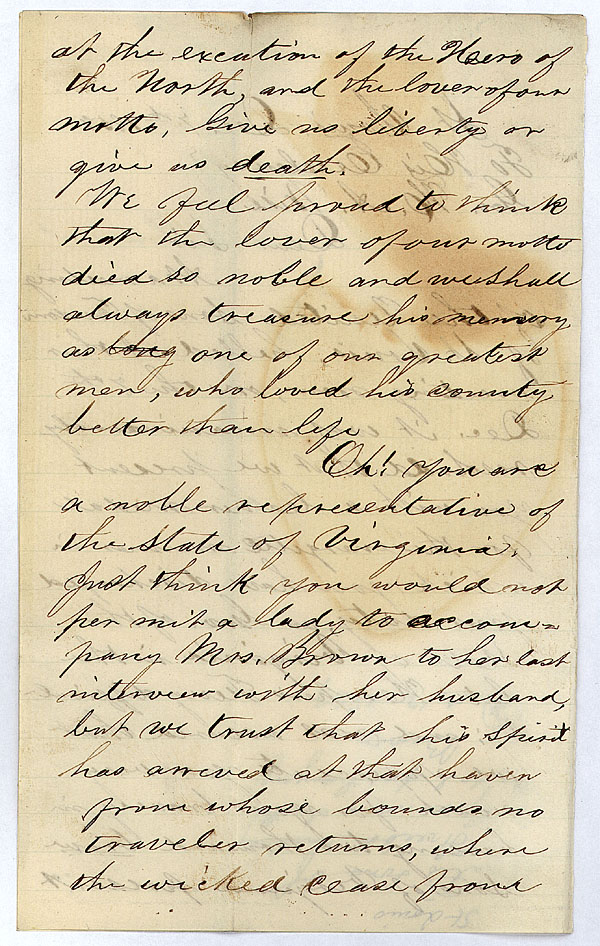 at the execution of the Hero of
the North, and the lover of our
motto, Give us liberty or
give us death.
We feel proud to think
that the lover of our motto
died so noble and we shall
always treasure his memory
as long one of our greatest
men, who loved his county
better than life
Oh! You are
a noble representative of
the State of Virginia.
Just think you would not
permit a lady to accom=
pany Mrs. Brown to her last
interview with her husband,
but we trust that his spirit
has arrived at that haven
from whose bounds no
traveler returns, where
the wicked cease from